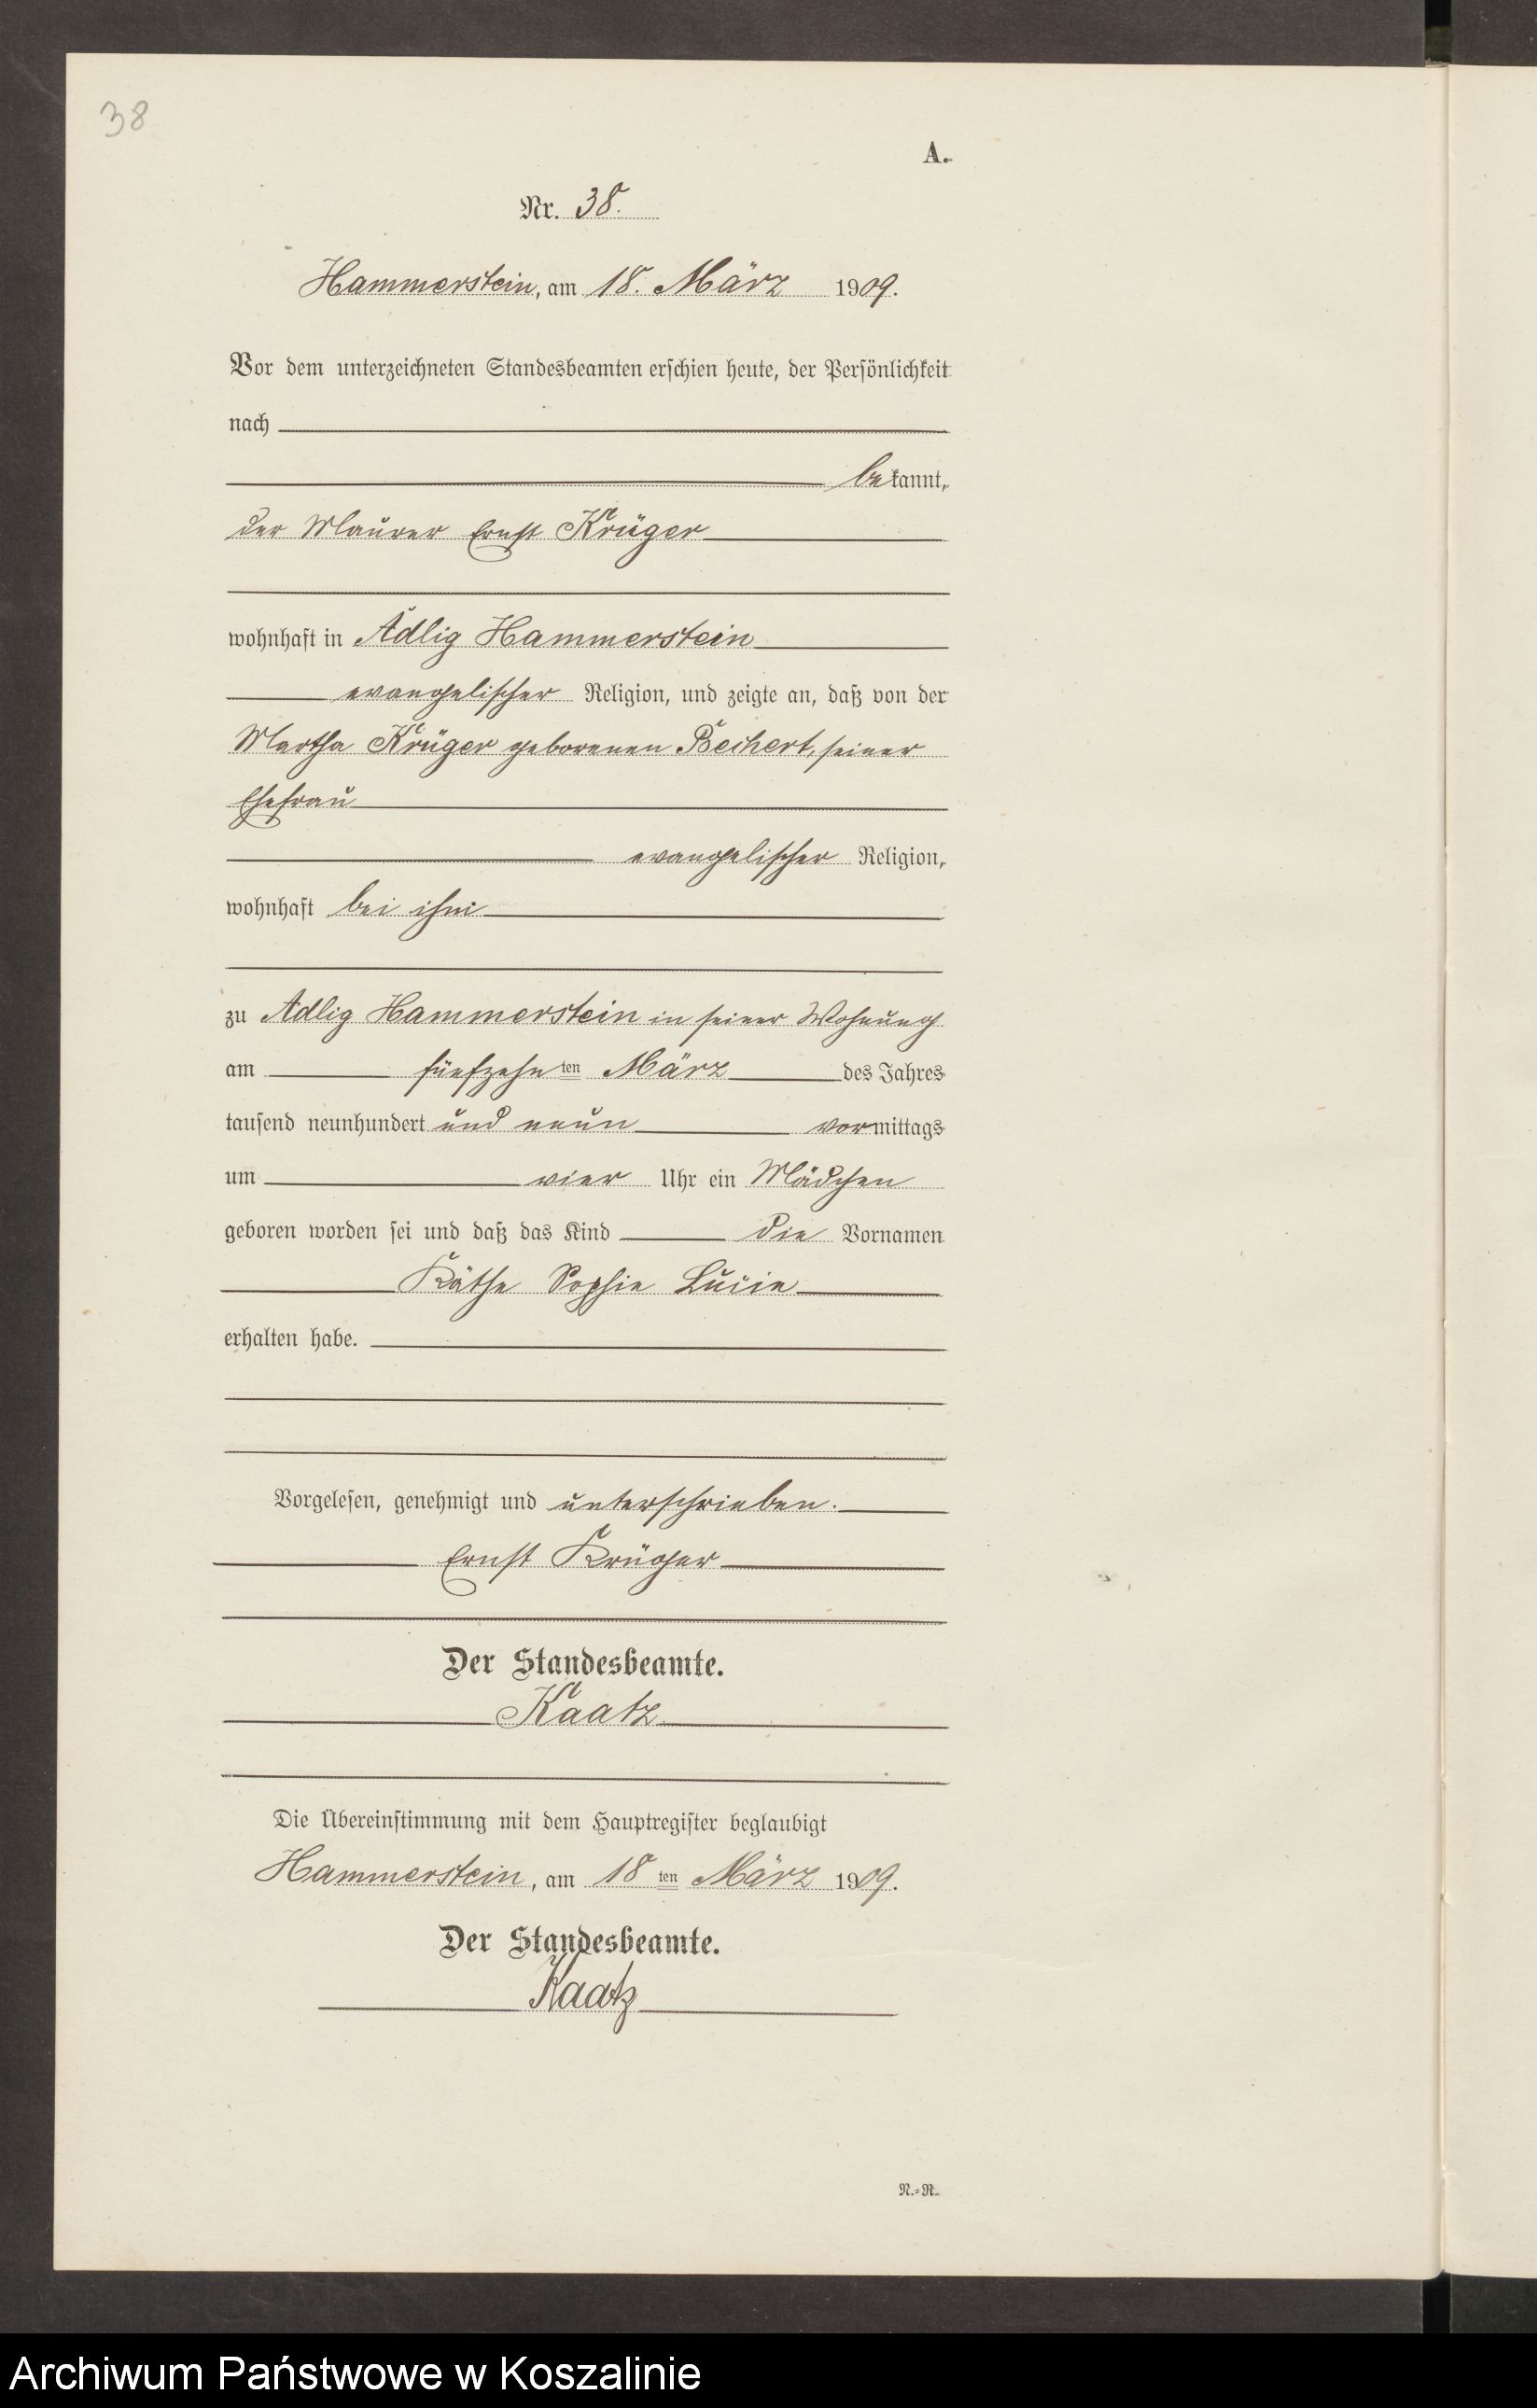 38
A.
Nr. 38.
Hammerstein, am 18. März 1909.
Vor dem unterzeichneten Standesbeamten erschien heute, der Persönlichkeit
nach
bekannt,
der Maurer Ernst Krüger
wohnhaft in Adlig Hammerstein
evangelischer Religion, und zeigte an, daß von der
Martha Krüger geborenen Beihert, seiner
Ehefrau
evangelischer Religion,
wohnhaft bei ihm
zu Adlig Hammerstein in seiner Wohnung
am fünfzehnten März des Jahres
tausend neunhundert und neun vormittags
um vier Uhr ein Mädchen
geboren worden sei und daß das Kind die Vornamen
Käthe Sophie Lucie
erhalten habe.
Vorgelesen, genehmigt und unterschrieben.
Ernst Krüger
Der Standesbeamte.
Kaatz
Die Übereinstimmung mit dem Hauptregister beglaubigt
Hammerstein, am 18ten März 1909.
Der Standesbeamte.
Kaatz
N.=R.
Archiwum Państwowe w Koszalinie